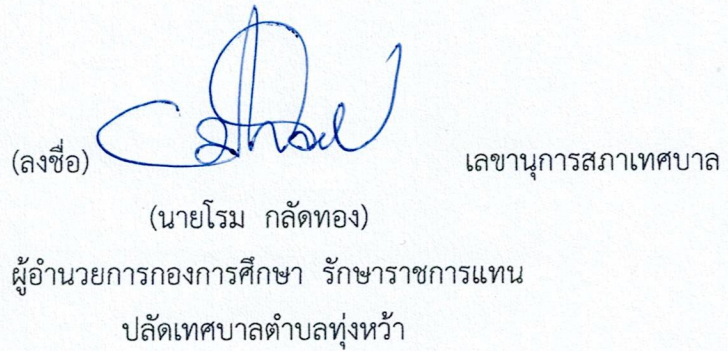 (ลงชื่อ) เลขานุการสภาเทศบาล
(นายโรม กลัดทอง)
ผู้อำนวยการกองการศึกษา รักษาราชการแทน
ปลัดเทศบาลตำบลทุ่งหว้า